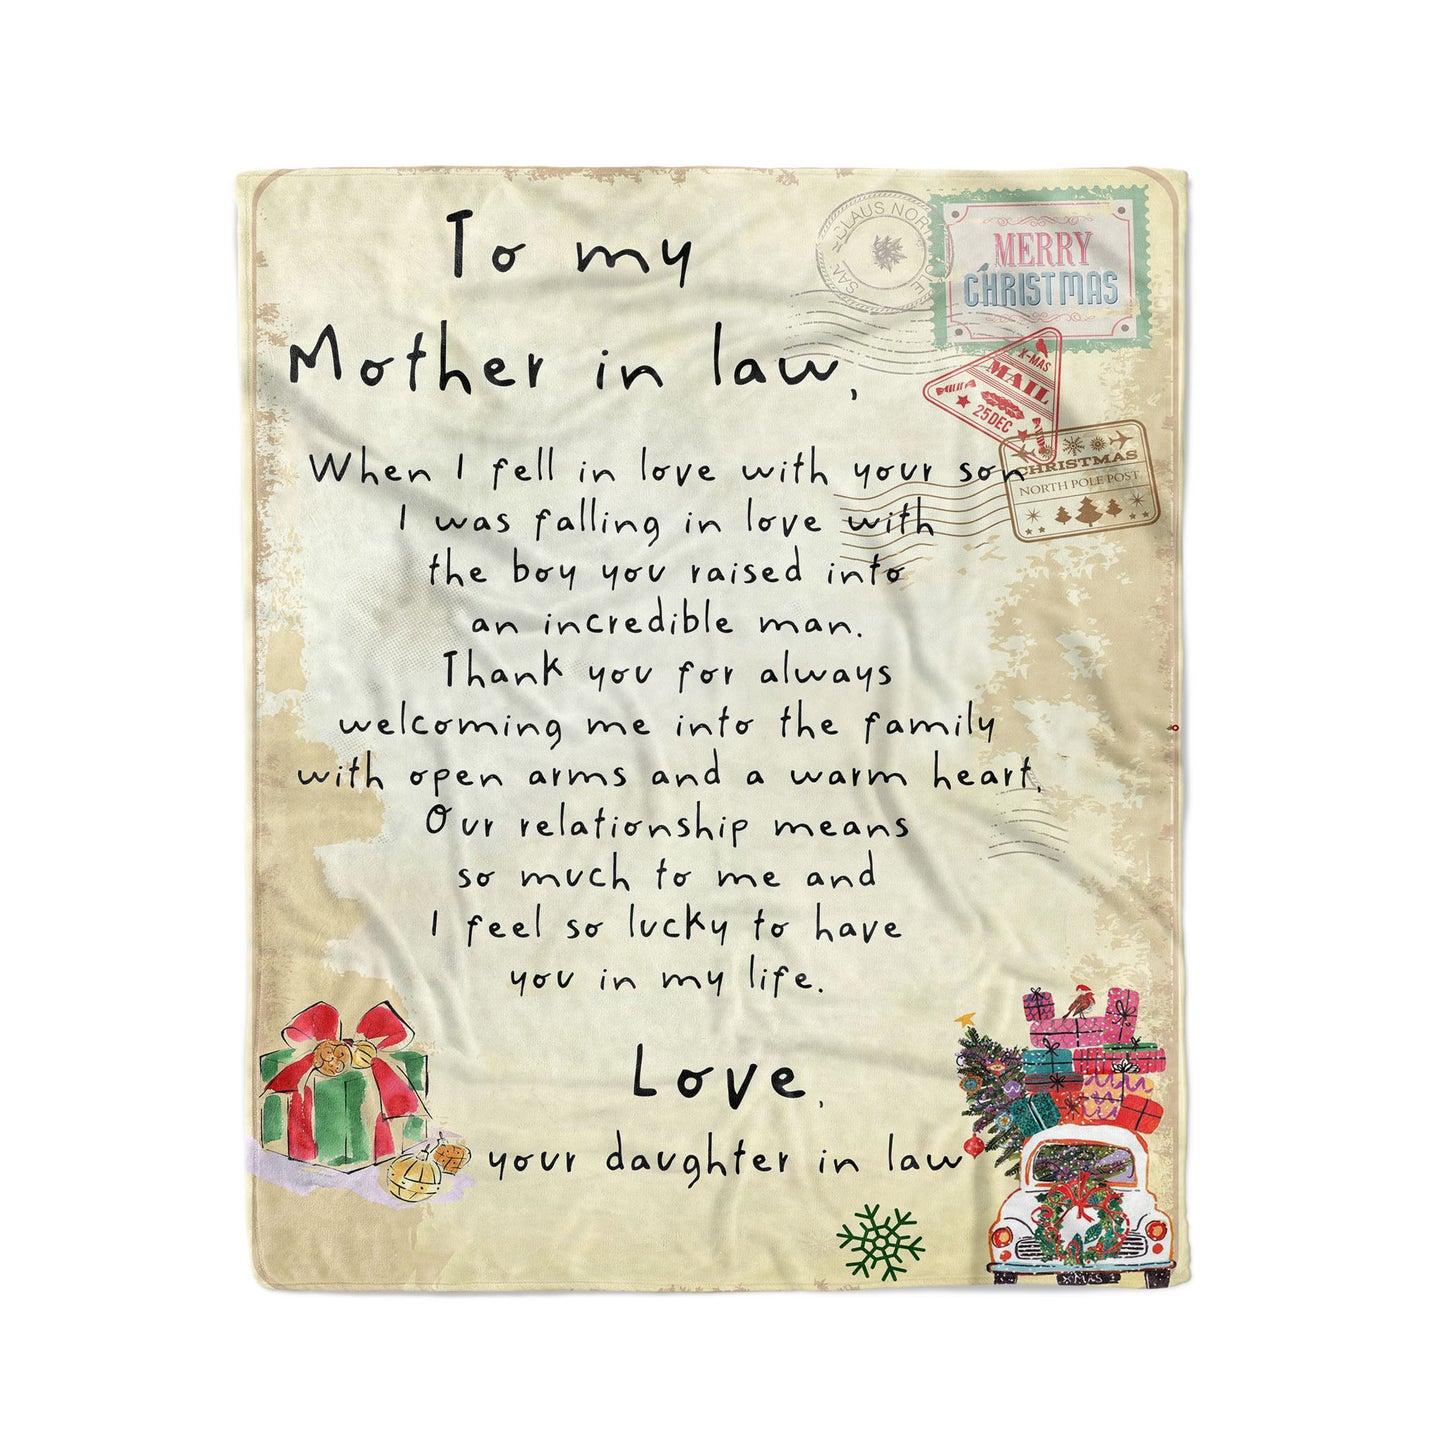 To my
Mother in law,
When I fell in love with your son
I was falling in love with
the boy you raised into
an incredible man.
Thank you for always
welcoming me into the family
with open arms and a warm heart.
Our relationship means
so much to me and
I feel so lucky to have
you in my life.
Love,
your daughter in law
MERRY
CHRISTMAS
X-MAS
MAIL
25 DEC
CHRISTMAS
NORTH POLE POST
X-MAS